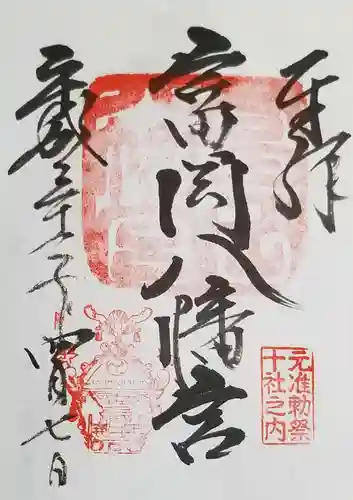 奉拝
富岡八幡宮
平成三十一年四月七日
元准勅祭
十社之内